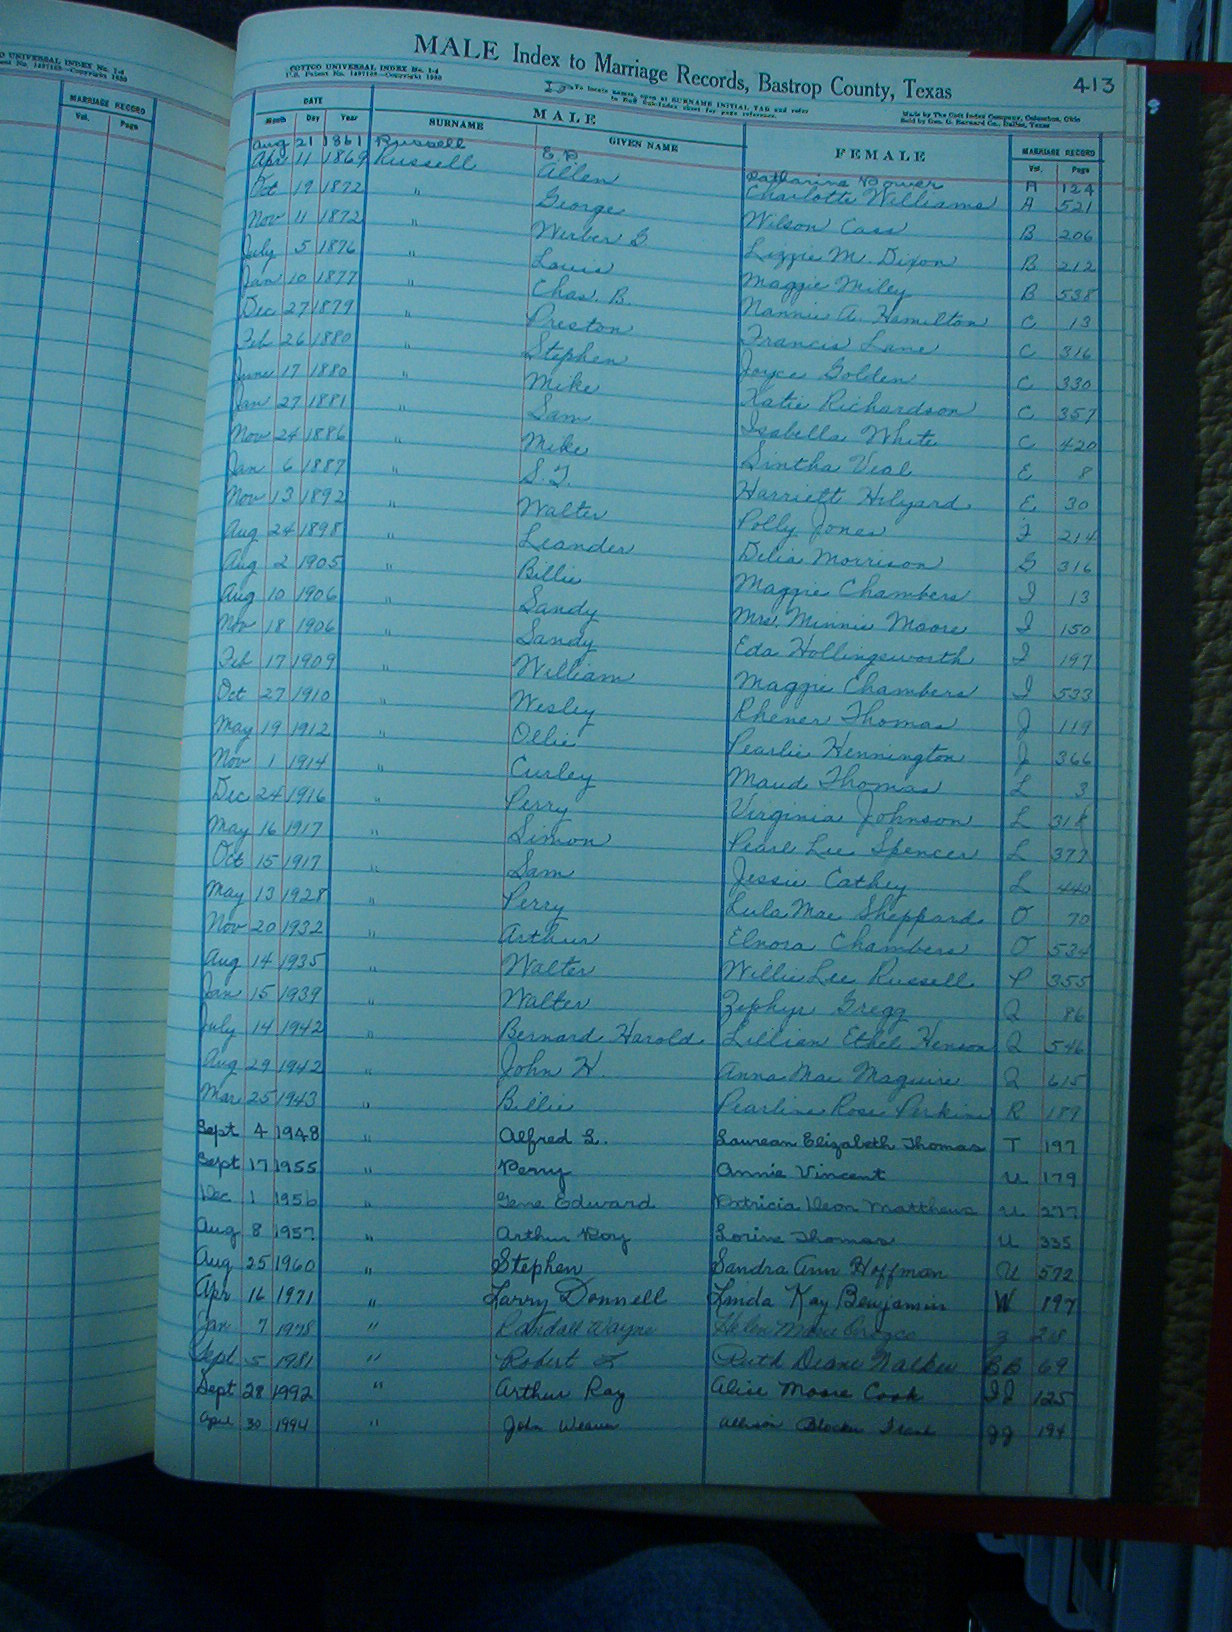 COTTCO UNIVERSAL INDEX No. 1-4
MARRIAGE RECORD
Vol. Page
413
MALE Index to Marriage Records, Bastrop County, Texas
COTTCO UNIVERSAL INDEX No. 1-4
U.S. Patent No. 1497189—Copyright 1930
To locate names, open at SURNAME INITIAL TAB and refer
to Sub-Index sheet for page reference.
Made by The Cott Index Company, Columbus, Ohio
Sold by Geo. G. Barnard Co., Dallas, Texas
DATE MALE FEMALE MARRIAGE RECORD
Month Day Year SURNAME GIVEN NAME Vol. Page
Aug 21 1861 Russell E P Catharine Power A 124
Apr 11 1869 Russell Allen Charlotte Williams A 521
Oct 19 1872 " George Wilson Cass B 206
Nov 11 1872 " Werber G Lizzie M. Dixon B 212
July 5 1876 " Louis Maggie Miley B 538
Jan 10 1877 " Chas. B. Nannie A. Hamilton C 13
Dec 27 1879 " Preston Francis Lane C 316
Feb 26 1880 " Stephen Joyce Golden C 330
June 17 1880 " Mike Katie Richardson C 357
Jan 27 1881 " Sam Isabella White C 420
Nov 24 1886 " Mike Sintha Veal E 8
Jan 6 1887 " S. T. Harriett Hilyard E 30
Nov 13 1892 " Walter Polly Jones F 214
Aug 24 1898 " Leander Delia Morrison G 316
Aug 2 1905 " Billie Maggie Chambers I 13
Aug 10 1906 " Sandy Mrs. Minnie Moore I 150
Nov 18 1906 " Sandy Eda Hollingsworth I 197
Feb 17 1909 " William Maggie Chambers I 533
Oct 27 1910 " Wesley Rhener Thomas J 119
May 19 1912 " Ollie Pearlie Hennington J 366
Nov 1 1914 " Curley Maud Thomas L 3
Dec 24 1916 " Perry Virginia Johnson L 318
May 16 1917 " Simon Pearl Lee Spencer L 377
Oct 15 1917 " Sam Jessie Cathey L 440
May 13 1928 " Perry Lula Mae Sheppard O 70
Nov 20 1932 " Arthur Elnora Chambers O 534
Aug 14 1935 " Walter Willie Lee Russell P 355
Jan 15 1939 " Walter Zephyr Gregg Q 86
July 14 1942 " Bernard Harold Lillian Ethel Henson Q 546
Aug 29 1942 " John H. Anna Mae Maguire Q 615
Mar 25 1943 " Billie Pearline Rose Perkins R 189
Sept 4 1948 " Alfred L. Laurean Elizabeth Thomas T 197
Sept 17 1955 " Perry Annie Vincent U 179
Dec 1 1956 " Gene Edward Patricia Deon Matthews U 277
Aug 8 1957 " Arthur Roy Lorine Thomas U 335
Aug 25 1960 " Stephen Sandra Ann Hoffman U 572
Apr 16 1971 " Larry Donnell Linda Kay Benjamin W 197
Jan 7 1978 " Randall Wayne Helen Marie Orozco Z
Sept 5 1981 " Robert Ruth Diane Walker BB 69
Sept 28 1992 " Arthur Ray Alice Moore Cook II 125
April 30 1994 " John Weaver Allison Blocker JJ 194